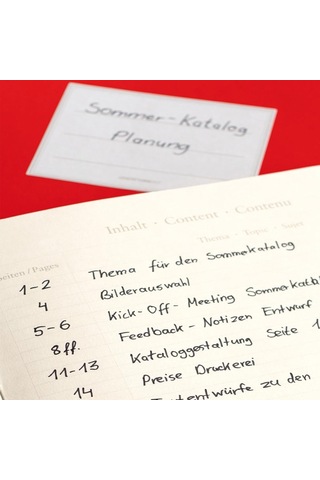 Sommer-Katalog
Planung
Inhalt · Content · Contenu
Thema · Topic · Sujet
eiten / Pages
1-2 Thema für den Sommekatalog
4 Bilderauswahl
5-6 Kick-Off-Meeting
8ff. Feedback-Notizen Entwurf
11-13 Kataloggestaltung Seite 1
14 Preise Druckerei
zu den